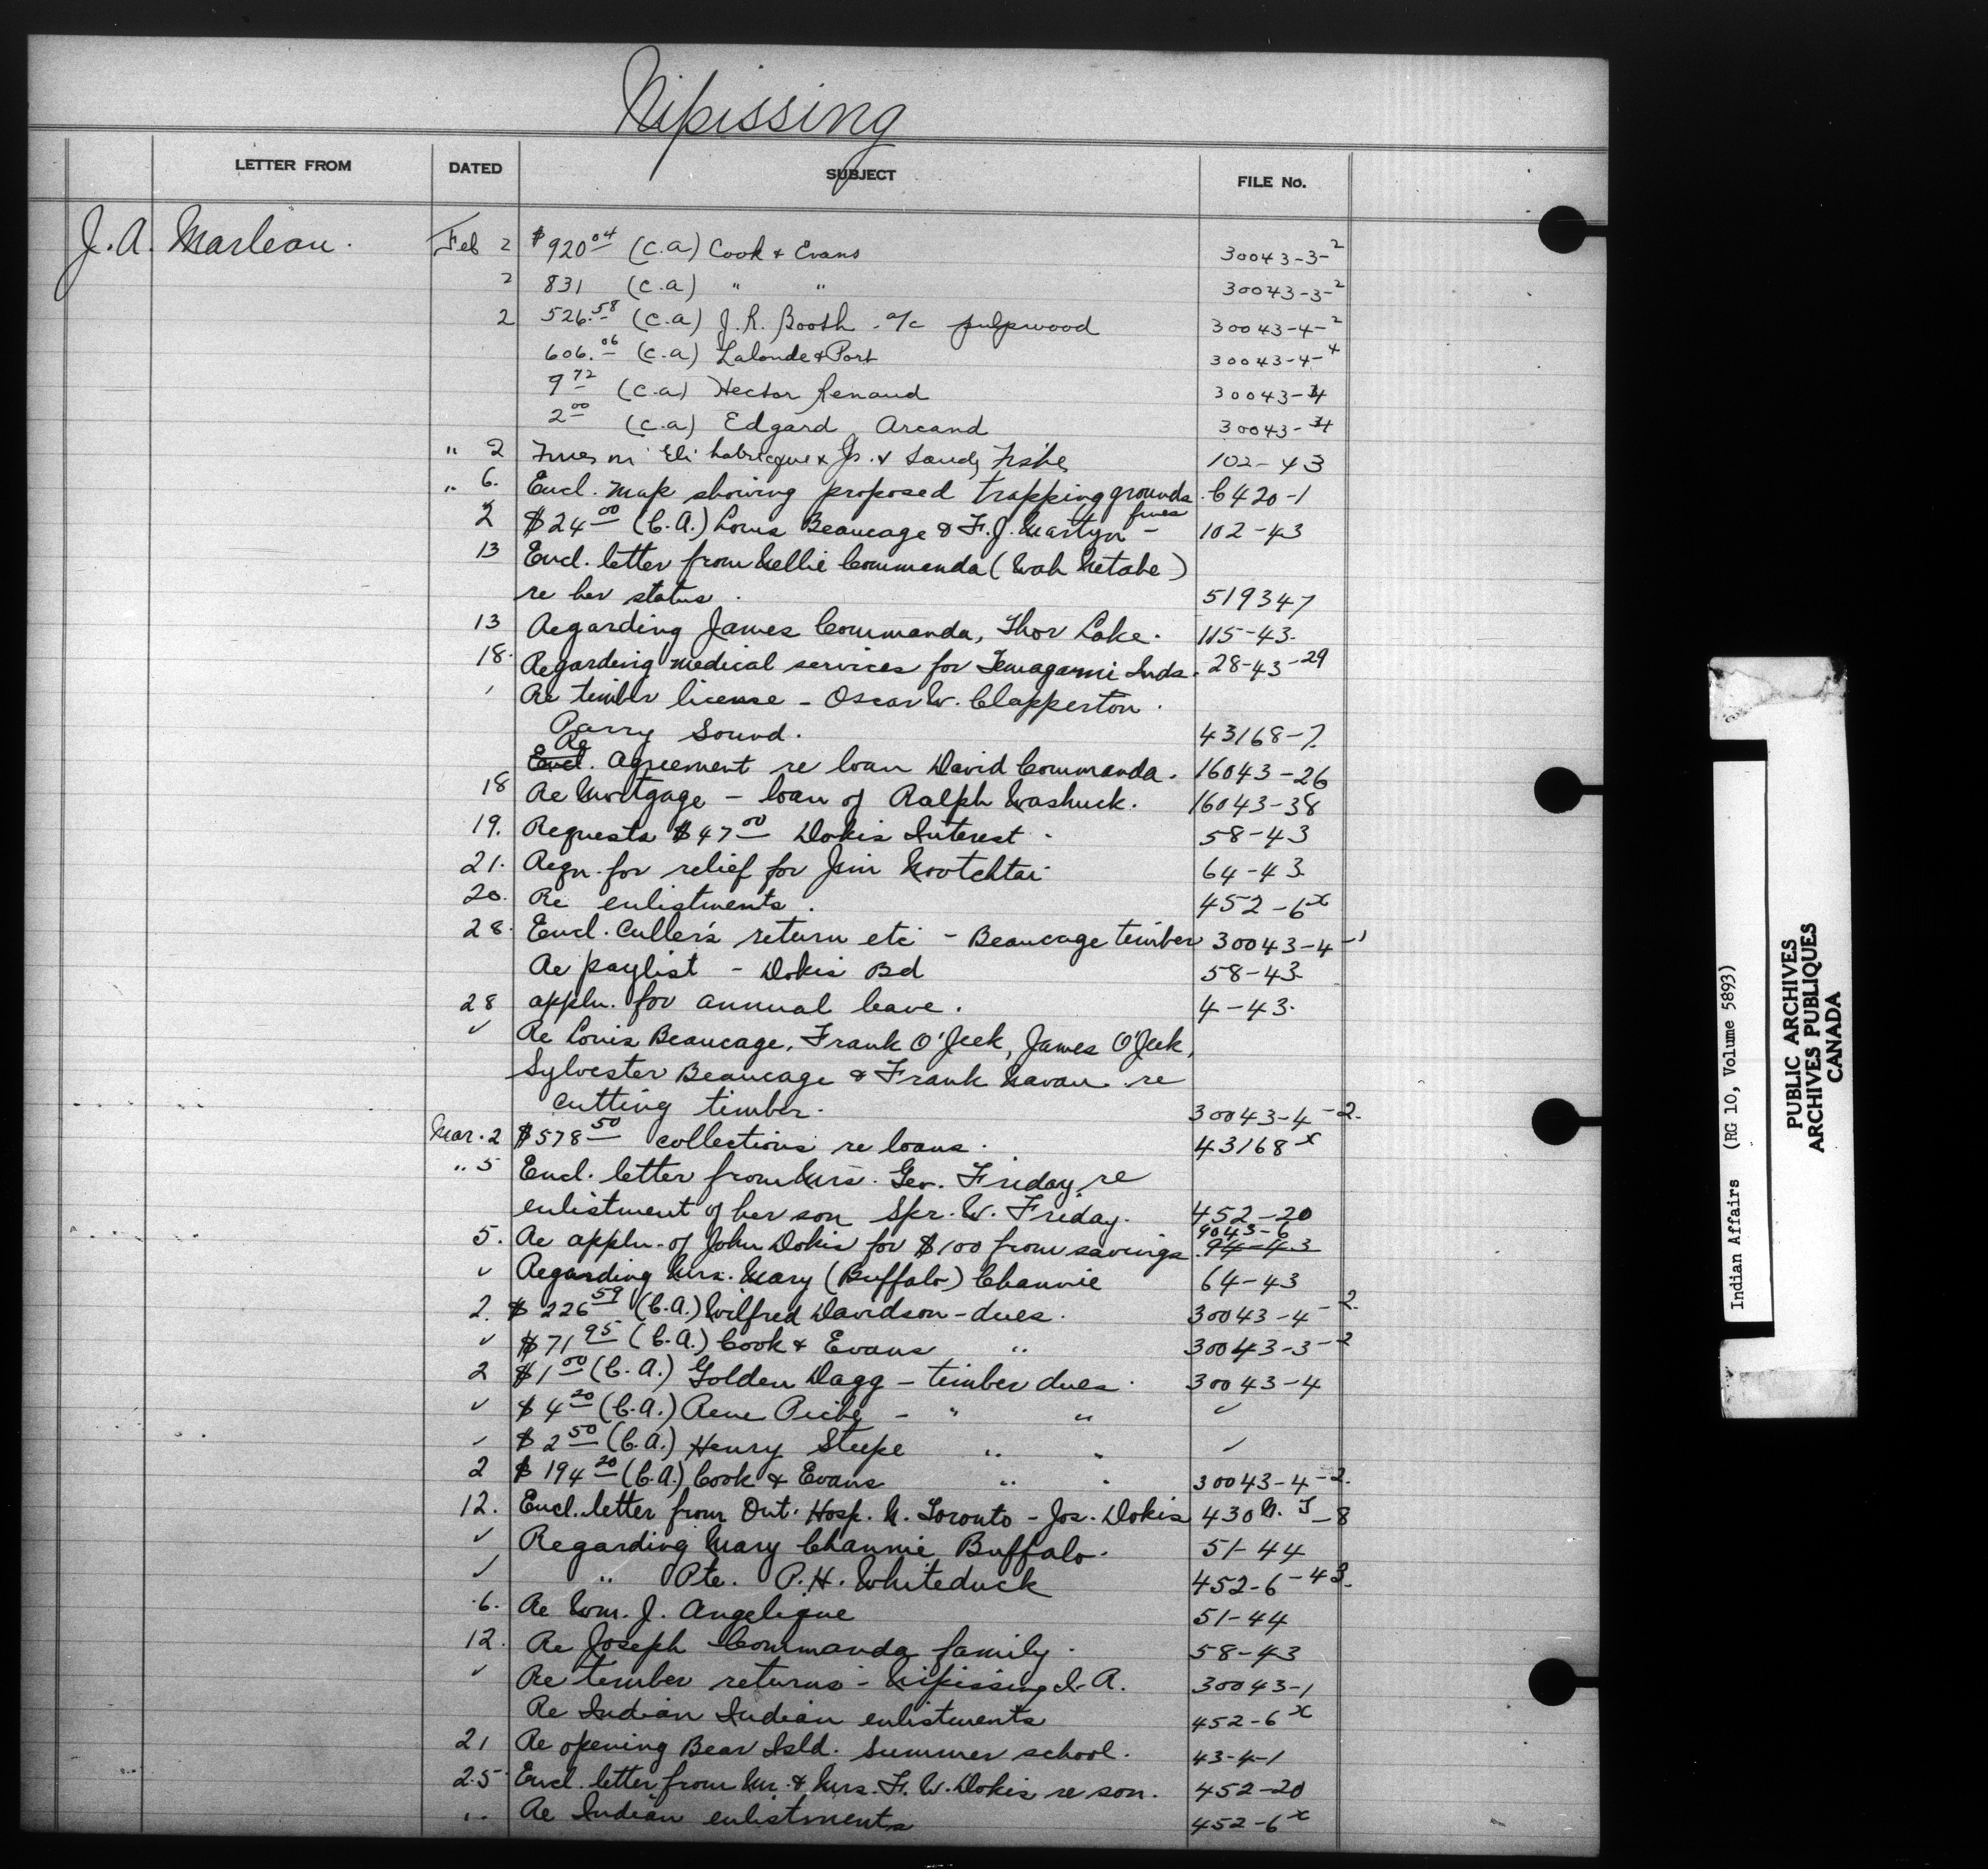 Nipissing
LETTER FROM DATED SUBJECT FILE No.
J. A. Marleau. Feb 2 $920.04 (C.A) Cook & Evans 30043-3-2
2 831 (C.A) " " 30043-3-2
2 526.58 (C.A) J. R. Booth - a/c pulpwood 30043-4-2
606.06 (C.A) Lalonde & Port 30043-4-4
9.72 (C.A) Hector Renaud 30043-4
2.00 (C.A) Edgard Arcand 30043-4
" 2 Fines Eli & Jr. & Sandy Fisher 102-43
" 6. Encl. map showing proposed trapping grounds. 6420-1
2 $24.00 (C.A.) Louis Beaucage & F. J. Martyn - fines 102-43
13 Encl. letter from Nellie Commanda (Wah Netahe)
re her status. 519347
13 Regarding James Commanda, Thor Lake. 115-43.
18. Regarding medical services for Temagami Inds. 28-43-29
' Re timber license - Oscar W. Clapperton.
Parry Sound. 43168-7.
Re Encl. Agreement re loan David Commanda. 16043-26
18 Re Mortgage - loan of Ralph Washuck. 16043-38
19. Requests $47.00 Dokis Interest - 58-43
21. Reqn. for relief for Jim Nootchtai 64-43
20. Re enlistments. 452-6x
28. Encl. Culler's return etc - Beaucage timber 30043-4-1
Re paylist - Dokis Bd 58-43
28 appln. for annual leave. 4-43.
✓ Re Louis Beaucage, Frank O'Jeek, James O'Jeek,
Sylvester Beaucage & Frank Navau re
cutting timber. 30043-4-2.
Mar. 2 $578.50 collections re loans. 43168x
" 5 Encl. letter from Mrs. Geo. Friday, re
enlistment of her son Spr. W. Friday. 452-20
5. Re appln. of John Dokis for $100 from savings 9043-6 94-43
✓ Regarding Mrs. Mary (Buffalo) Channie 64-43
2. $226.59 (C.A.) Wilfred Davidson - dues. 30043-4-2.
✓ $71.95 (C.A.) Cook & Evans " 30043-3-2
2 $1.00 (C.A.) Golden Dagg - timber dues. 30043-4
✓ $4.20 (C.A.) Rene Piche - " " ✓
✓ $2.50 (C.A.) Henry Steepe " " ✓
2 $194.20 (C.A.) Cook & Evans " " 30043-4-2.
12. Encl. letter from Ont. Hosp. N. Toronto - Jos. Dokis 430 N. T-8
✓ Regarding Mary Channie Buffalo. 51-44
✓ " Pte. P. H. Whiteduck 452-6-43.
6. Re Wm. J. Angelique 51-44
12. Re Joseph Commanda family. 58-43
✓ Re timber returns - Nipissing I. A. 30043-1
Re Indian Indian enlistments 452-6x
21 Re opening Bear Isld. Summer school. 43-4-1
25 Encl. letter from Mr. & Mrs. F. W. Dokis re son. 452-20
" Re Indian enlistments 452-6x
Indian Affairs (RG 10, Volume 5893)
PUBLIC ARCHIVES
ARCHIVES PUBLIQUES
CANADA